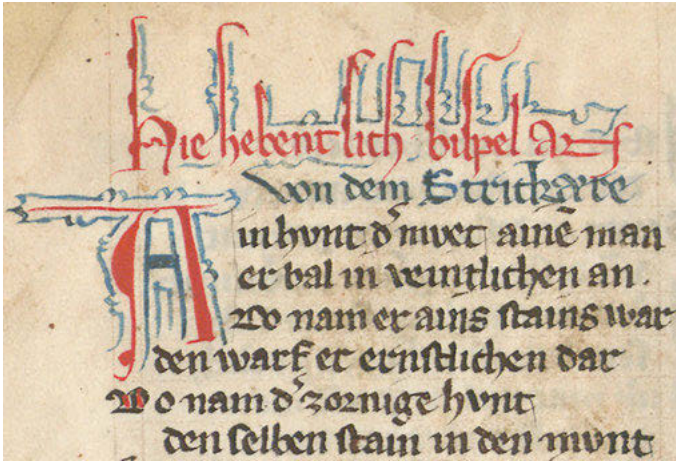 Hie hebent sich bispel an
von dem Strickære
Ain hvnt d͛ mvet ainē man
er bal in veintlichen an.
Do nam er ains stains war
den warf er ernstlichen dar
Do nam d͛ zornige hvnt
den selben stain in den mvnt